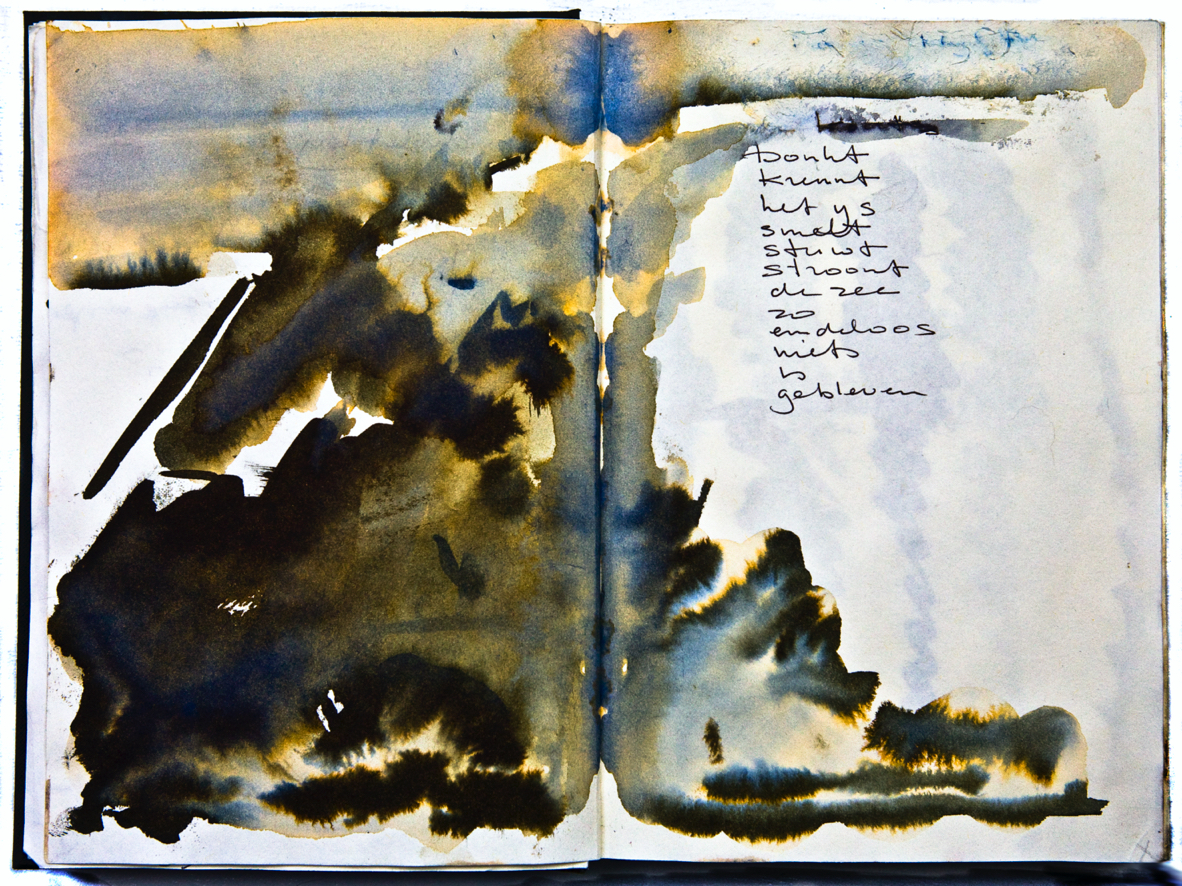 bonkt
kreunt
het ys
smelt
stuwt
stroomt
de zee
zo
eindeloos
niets
is
gebleven